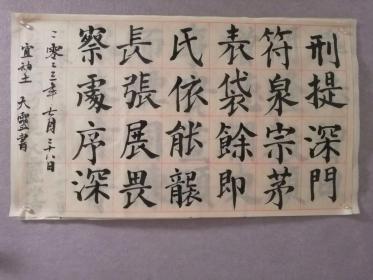 刑提深門
符泉宗茅
表袋餘即
氏依能襲
長張展畏
察處序深
二零二三年七月二十八日
天靈書